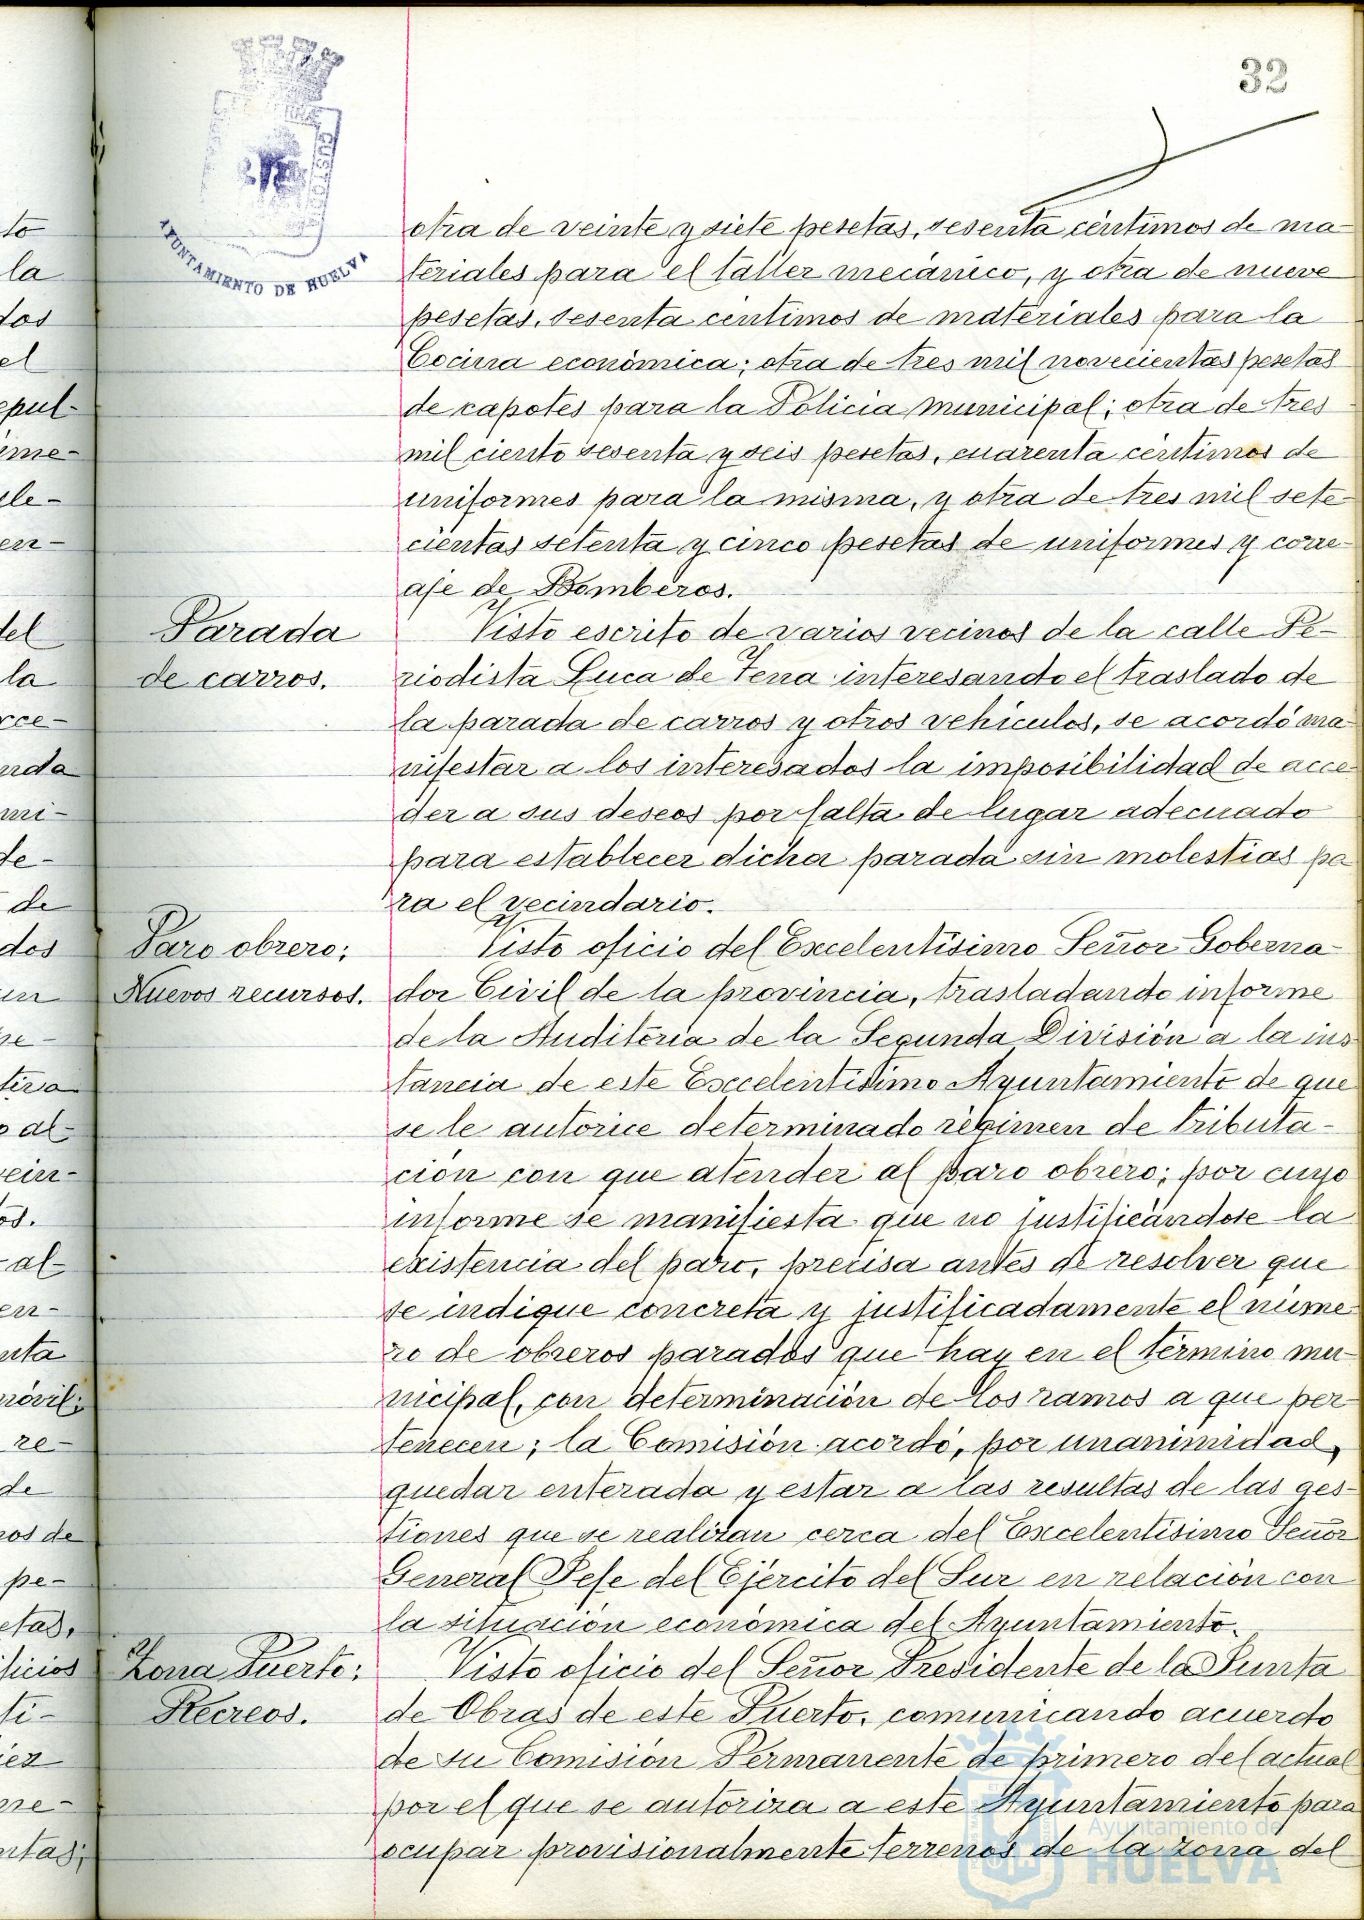 32
AYUNTAMIENTO DE HUELVA
otra de veinte y siete pesetas, sesenta céntimos de ma-
teriales para el taller mecánico, y otra de nueve
pesetas, sesenta céntimos de materiales para la
Cocina económica; otra de tres mil novecientas pesetas
de capotes para la Policia municipal; otra de tres
mil ciento sesenta y seis pesetas, cuarenta céntimos de
uniformes para la misma, y otra de tres mil sete-
cientas setenta y cinco pesetas de uniformes y corre-
aje de Bomberos.
Parada
de carros.
Visto escrito de varios vecinos de la calle Pe-
riodista Luca de Tena interesando el traslado de
la parada de carros y otros vehículos, se acordó ma-
nifestar a los interesados la imposibilidad de acce-
der a sus deseos por falta de lugar adecuado
para establecer dicha parada sin molestias pa
ra el vecindario.
Paro obrero;
Nuevos recursos.
Visto oficio del Excelentísimo Señor Goberna-
dor Civil de la provincia, trasladando informe
de la Auditoria de la Segunda División a la ins
tancia de este Excelentísimo Ayuntamiento de que
se le autorice determinado régimen de tributa-
ción con que atender al paro obrero; por cuyo
informe se manifiesta que no justificándose la
existencia del paro, precisa antes de resolver que
se indique concreta y justificadamente el núme
ro de obreros parados que hay en el término mu-
nicipal, con determinación de los ramos a que per-
tenecen; la Comisión acordó, por unanimidad,
quedar enterada y estar a las resultas de las ges-
tiones que se realizan cerca del Excelentísimo Señor
General Jefe del Ejército del Sur en relación con
la situación económica del Ayuntamiento.
Zona Puerto;
Recreos.
Visto oficio del Señor Presidente de la Junta
de Obras de este Puerto, comunicando acuerdo
de su Comisión Permanente de primero del actual
por el que se autoriza a este Ayuntamiento para
ocupar provisionalmente terrenos de la zona del
Ayuntamiento de
HUELVA